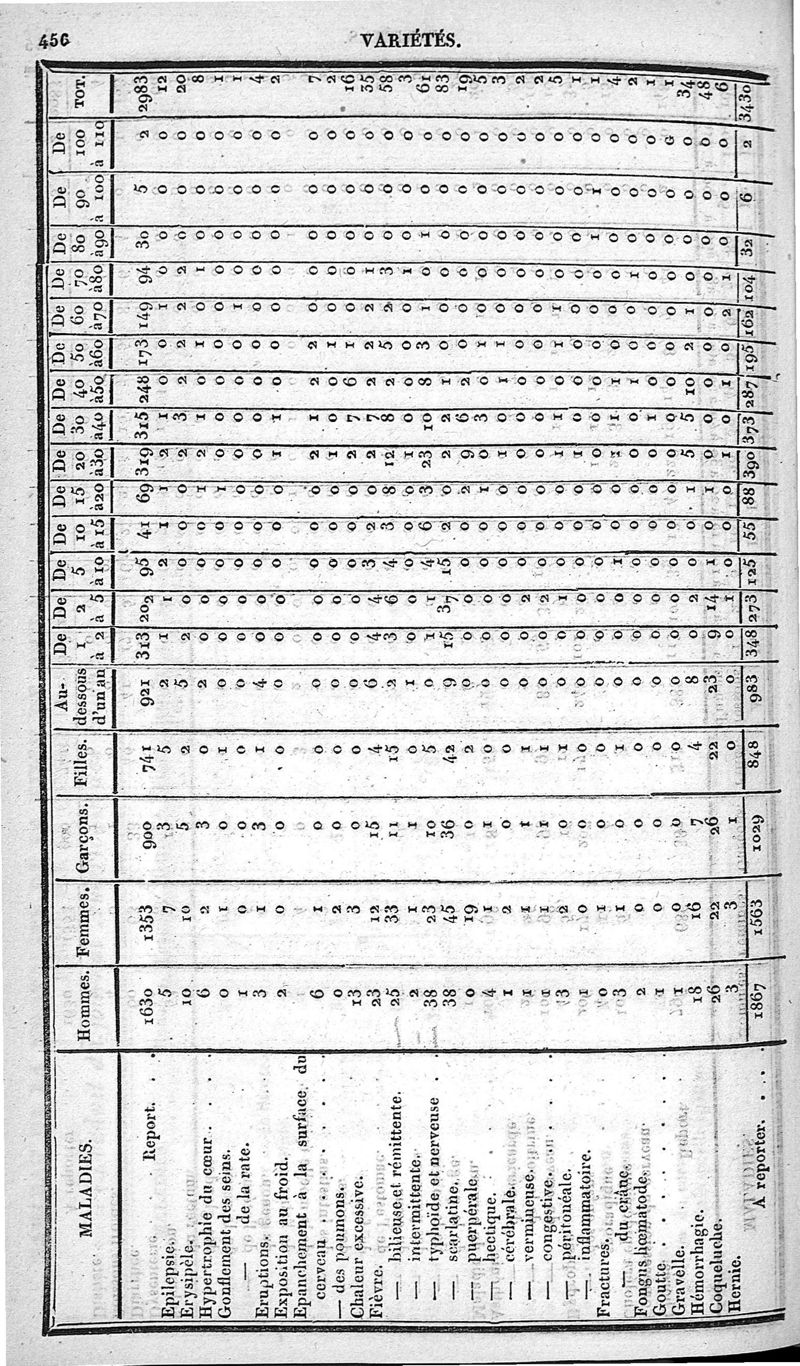 456
VARIÉTÉS.
MALADIES. Hommes. Femmes. Garçons. Filles. Au-dessous d'un an De 1 à 2 De 2 à 5 De 5 à 10 De 10 à 15 De 15 à 20 De 20 à 30 De 30 à 40 De 40 à 50 De 50 à 60 De 60 à 70 De 70 à 80 De 80 à 90 De 90 à 100 De 100 à 110 TOT.
Report. . . 1630 1353 900 741 921 313 202 95 41 69 319 315 248 173 149 94 30 5 2 2983
Epilepsie. 5 7 3 5 2 1 1 2 1 1 2 1 0 0 1 0 0 0 0 12
Erysipèle. 10 10 5 2 5 2 0 0 0 0 2 3 2 2 2 2 0 0 0 20
Hypertrophie du cœur. . . . 6 2 3 0 2 0 0 0 0 1 2 1 0 1 0 1 0 0 0 8
Gonflement des seins. 0 1 0 1 0 0 0 0 0 1 0 0 0 0 0 0 0 0 0 1
— de la rate. 1 0 0 0 0 0 0 0 0 0 0 0 0 0 1 0 0 0 0 1
Eruptions. 3 1 3 1 4 0 0 0 0 0 0 0 0 0 0 0 0 0 0 4
Exposition au froid. 2 0 0 0 0 0 0 0 0 0 1 1 0 0 0 0 0 0 0 2
Epanchement à la surface du
cerveau . . . . 6 1 0 0 0 0 0 0 0 0 2 1 2 2 0 0 0 0 0 7
— des poumons. 0 2 0 0 0 0 0 0 0 0 1 0 0 1 0 0 0 0 0 2
Chaleur excessive. 13 3 0 0 0 0 0 0 0 0 2 7 6 1 0 0 0 0 0 16
Fièvre. 23 12 15 4 6 4 4 3 2 0 2 7 2 2 2 1 0 0 0 35
— bilieuse et rémittente. 25 33 11 15 2 3 6 4 3 8 12 8 2 5 2 3 0 0 0 58
— intermittente. 2 1 1 0 1 0 0 0 0 0 1 0 0 0 0 1 0 0 0 3
— typhoïde et nerveuse . . 38 23 10 5 0 1 1 4 6 3 23 10 8 3 1 0 1 0 0 61
— scarlatine. 38 45 36 42 9 15 37 15 2 0 2 2 1 0 0 0 0 0 0 83
— puerpérale. 0 19 0 2 0 0 0 0 0 2 9 6 2 0 0 0 0 0 0 19
— hectique. 4 1 1 0 0 0 0 0 0 1 0 3 0 1 0 0 0 0 0 5
— cérébrale. 1 2 0 0 0 0 0 0 0 0 1 0 1 1 0 0 0 0 0 3
— vermineuse. 1 1 1 1 0 0 2 0 0 0 0 0 0 0 0 0 0 0 0 2
— congestive. 1 1 1 1 0 0 2 0 0 0 0 0 0 0 0 0 0 0 0 2
— péritonéale. 3 2 0 1 0 0 1 0 0 0 1 1 0 1 1 0 0 0 0 5
— inflammatoire. 1 0 0 0 0 0 0 0 0 0 1 0 0 0 0 0 0 0 0 1
Fractures. 0 1 0 0 0 0 0 0 0 0 0 0 0 0 0 0 1 1 0 1
— du crâne. 3 1 0 1 0 0 0 1 0 0 1 1 1 0 0 0 0 0 0 4
Fongus hœmatode. 2 0 0 0 0 0 0 0 0 0 0 0 1 0 0 1 0 0 0 2
Goutte . . . . 1 0 0 0 0 0 0 0 0 0 0 1 0 0 0 0 0 0 0 1
Gravelle. 1 0 0 0 0 0 0 0 0 0 0 0 0 0 0 0 0 0 0 1
Hémorrhagie. 18 16 7 4 8 0 2 0 0 1 5 5 10 2 1 0 0 0 0 34
Coqueluche. 26 22 26 22 23 9 14 1 0 1 0 0 0 0 0 0 0 0 0 48
Hernie. 3 3 1 0 0 0 1 0 0 0 1 0 1 0 2 1 0 0 0 6
A reporter. . . . 1867 1563 1029 848 983 348 273 125 55 88 390 373 287 195 162 104 32 6 2 3430